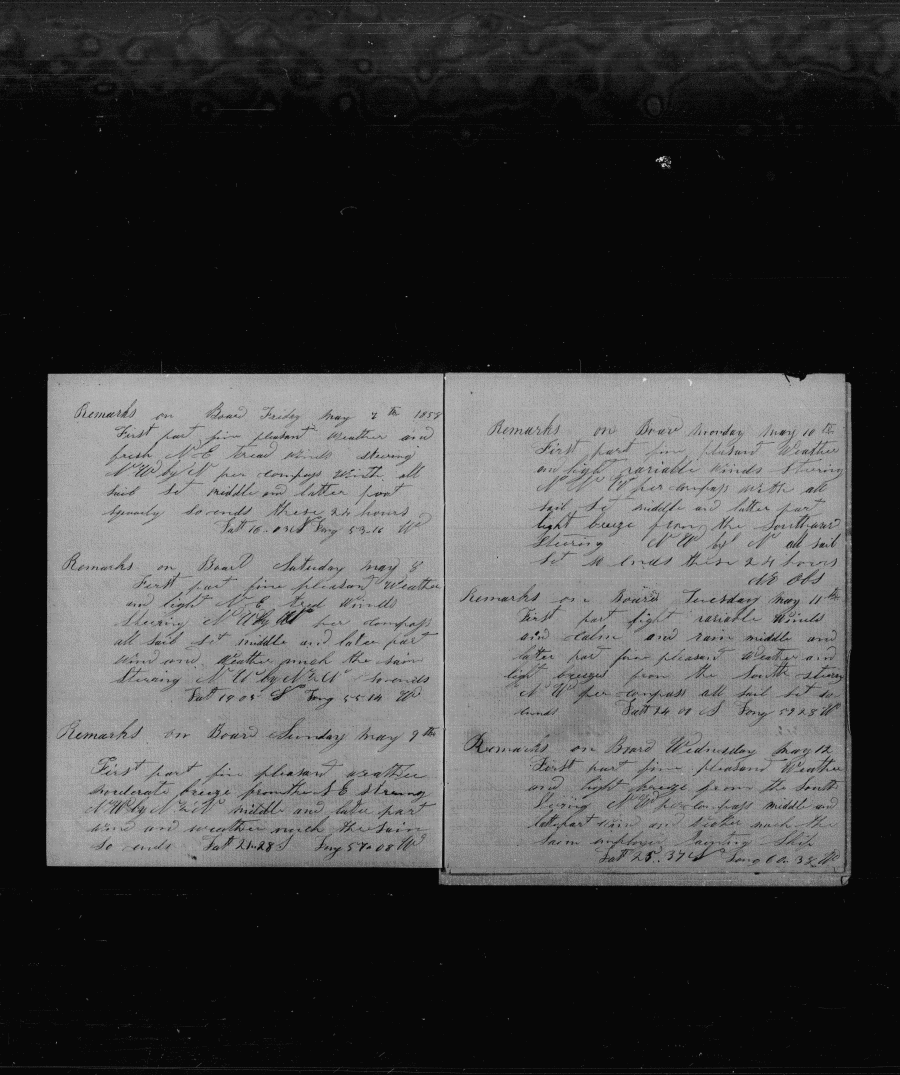 Remarks on Board Friday May 7th 1858
First part fine pleasant Weather and
fresh N E tread winds steering
N W by N per compass with all
sail set middle and latter part
so ends these 24 hours
Latt 16.03 S Long 53.16 W
Remarks on Board Saturday May 8
First part fine pleasant Weather
and light N E tred winds
steering N W by per compass
all sail set middle and later part
wind and weather much the sam
Stering N W by N so ends
Latt 19 05 S Long 55.14 W
Remarks on Board Sunday May 9th
First part fine pleasant weather
moderate breeze from the S E stering
N W by N middle and later part
wind and weather much the sam
So ends Latt 21.28 S Long 57.08 W
Remarks on Board monday May 10th
First part fine plesant Weather
an light variable winds Stering
N W per compass with all
sail set middle and latter part
light breeze from the Southward
Stering N W by N all sail
set so ends these 24 hours
No Obs
Remarks on Board Tuesday May 11th
First part light variable Winds
and calm and rain middle and
latter part fine pleasant Weather and
light breezes from the South stering
N W per compass all sail set so
ends Latt 24 01 S Long 59 28 W
Remarks on Board Wednesday May 12
First part fine pleasand Weather
and light breeze from the South
Stering N W per compass middle and
latt part wind and wether much the
sam employed Painting Ship
Latt 25.37 S Long 60.38 W